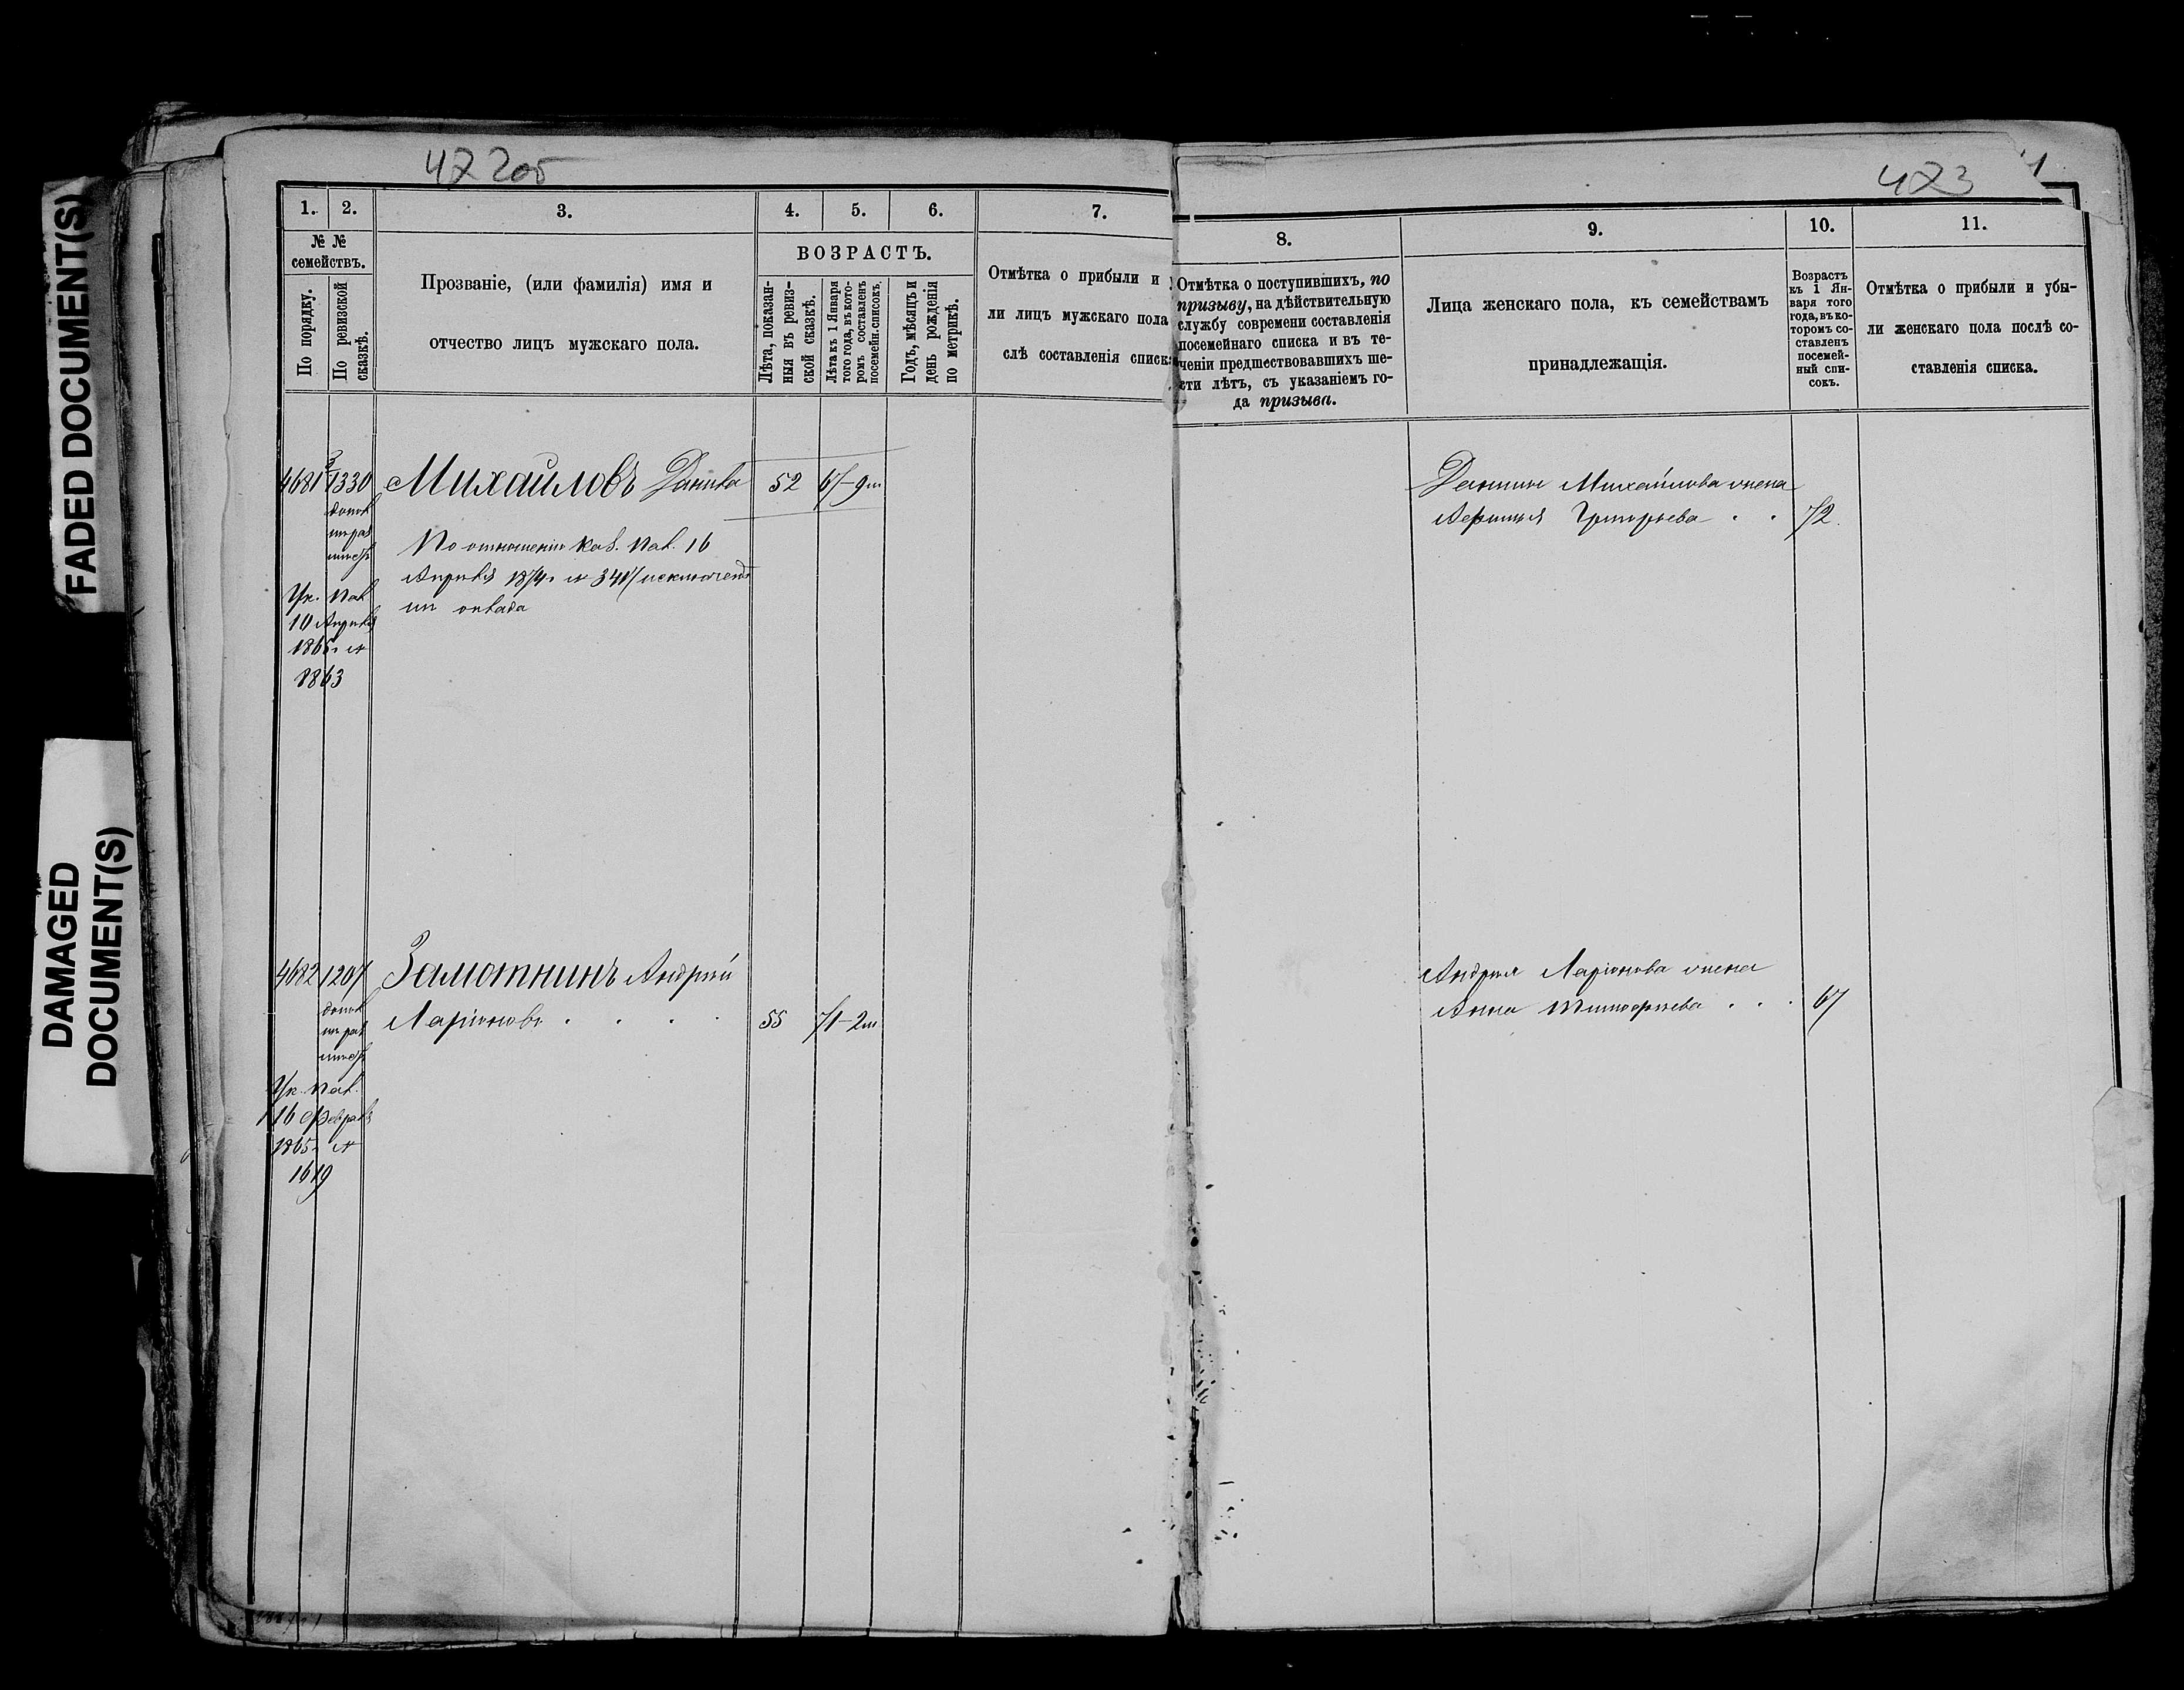 FADED DOCUMENT(S)
DAMAGED
DOCUMENT(S)
422об
1. 2. 3. 4. 5. 6. 7.
№ №
семействъ.
По порядку.
По ревизской
сказкѣ.
Прозваніе, (или фамилія) имя и
отчество лицъ мужскаго пола.
ВОЗРАСТЪ.
Лѣта, показан-
ныя въ ревиз-
ской сказкѣ.
Лѣта къ 1 Января
того года, въ кото-
ромъ составленъ
посемейн. списокъ.
Годъ, мѣсяцъ и
день рожденія
по метрикѣ.
Отмѣтка о прибыли и
ли лицъ мужскаго пола
слѣ составленія списк
4681 1330 Михайловъ Данила 52 67-9м
По отношенію Каз. Пал. 16
Апрѣля 1874г № 3417 исключенъ
из оклада
Ук. Пал
10 Апрѣля
1865г №
1863
4682 1207 Замотнинъ Андрей
Ларіоновъ . . . . 55 71-2м
Ук. Пал.
16 Февраля
1865г №
1619
423
8. 9. 10. 11.
Отмѣтка о поступившихъ, по
призыву, на дѣйствительную
службу современи составленія
посемейнаго списка и въ те-
ченіи предшествовавшихъ ше-
сти лѣтъ, съ указаніемъ го-
да призыва.
Лица женскаго пола, къ семействамъ
принадлежащія.
Возрастъ
къ 1 Ян-
варя того
года, въ ко-
торомъ со-
ставленъ
посемей-
ный спи-
сокъ.
Отмѣтка о прибыли и убы-
ли женскаго пола послѣ со-
ставленія списка.
Данилы Михайлова жена
Григорьева . . 72.
Андрея Ларіонова жена
Анна Тимофѣева . . . 67